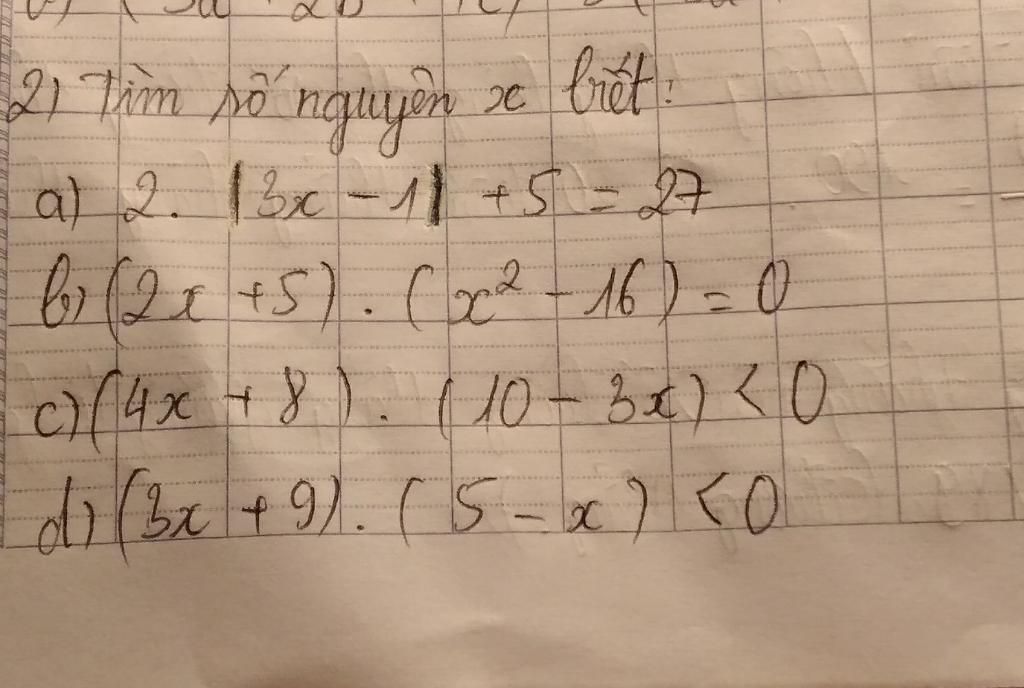 2) Tìm số nguyên x biết:
a) 2. |3x - 1| + 5 = 27
b) (2x + 5) . (x² - 16) = 0
c) (4x + 8) . (10 - 3x) < 0
d) (3x + 9) . (5 - x) < 0